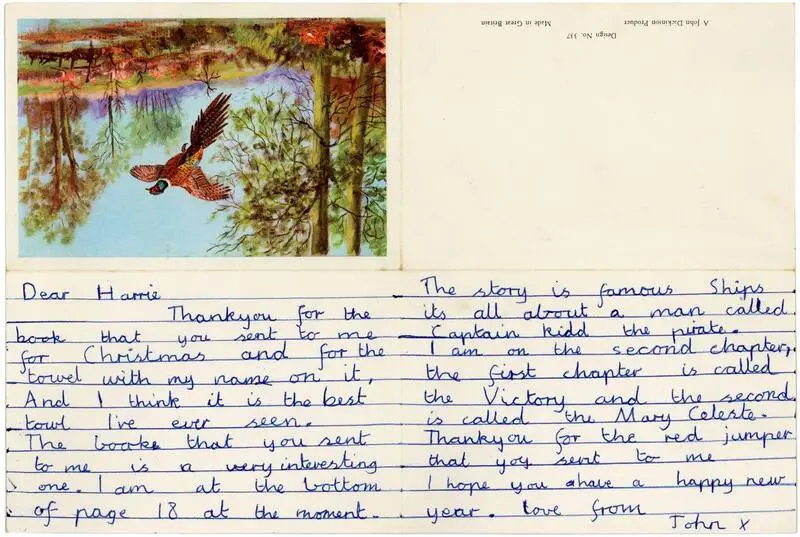 A John Dickinson Product
Made in Great Britain
Design No. 337
Dear Harrie
Thankyou for the
book that you sent to me
for Christmas and for the
towel with my name on it,
And I think it is the best
towl I've ever seen.
The book that you sent
to me is a very interesting
one. I am at the bottom
of page 18 at the moment.
The story is famous Ships
its all about a man called
Captain kidd the pirate.
I am on the second chapter,
the first chapter is called
the Victory and the second
is called the Mary Celeste.
Thankyou for the red jumper
that yoy sent to me
I hope you ahave a happy new
year. love from
John x